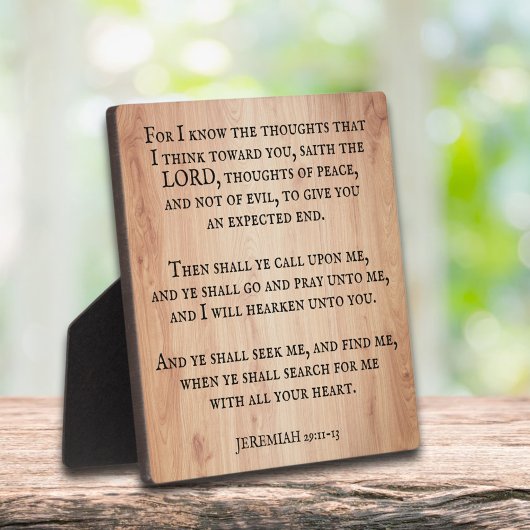 For I know the thoughts that
I think toward you, saith the
LORD, thoughts of peace,
and not of evil, to give you
an expected end.
Then shall ye call upon me,
and ye shall go and pray unto me,
and I will hearken unto you.
And ye shall seek me, and find me,
when ye shall search for me
with all your heart.
JEREMIAH 29:11-13